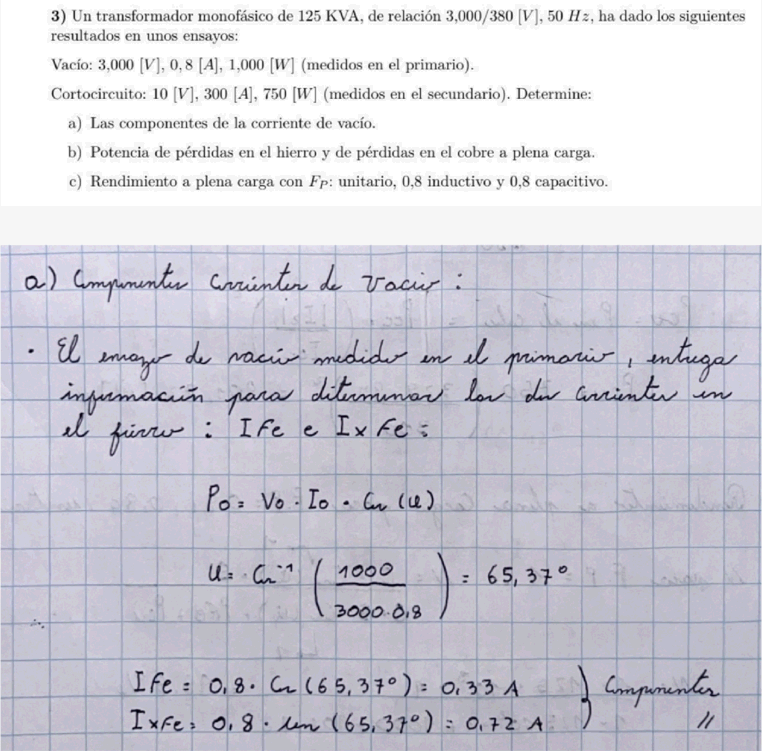 3) Un transformador monofásico de 125 KVA, de relación 3,000/380 [V], 50 Hz, ha dado los siguientes
resultados en unos ensayos:
Vacío: 3,000 [V], 0,8 [A], 1,000 [W] (medidos en el primario).
Cortocircuito: 10 [V], 300 [A], 750 [W] (medidos en el secundario). Determine:
a) Las componentes de la corriente de vacío.
b) Potencia de pérdidas en el hierro y de pérdidas en el cobre a plena carga.
c) Rendimiento a plena carga con F_P: unitario, 0,8 inductivo y 0,8 capacitivo.
a) Componentes corrientes de vacio :
· El ensayo de vacio medido en el primario, entrega
información para determinar las dos corrientes en
el fierro : IFe e IxFe :
Po = Vo · Io · Cos (φ)
φ = Cos⁻¹ (1000 / 3000·0,8) = 65,37°
IFe = 0,8 · Cos (65,37°) = 0,33 A } Componentes
IxFe = 0,8 · sen (65,37°) = 0,72 A //